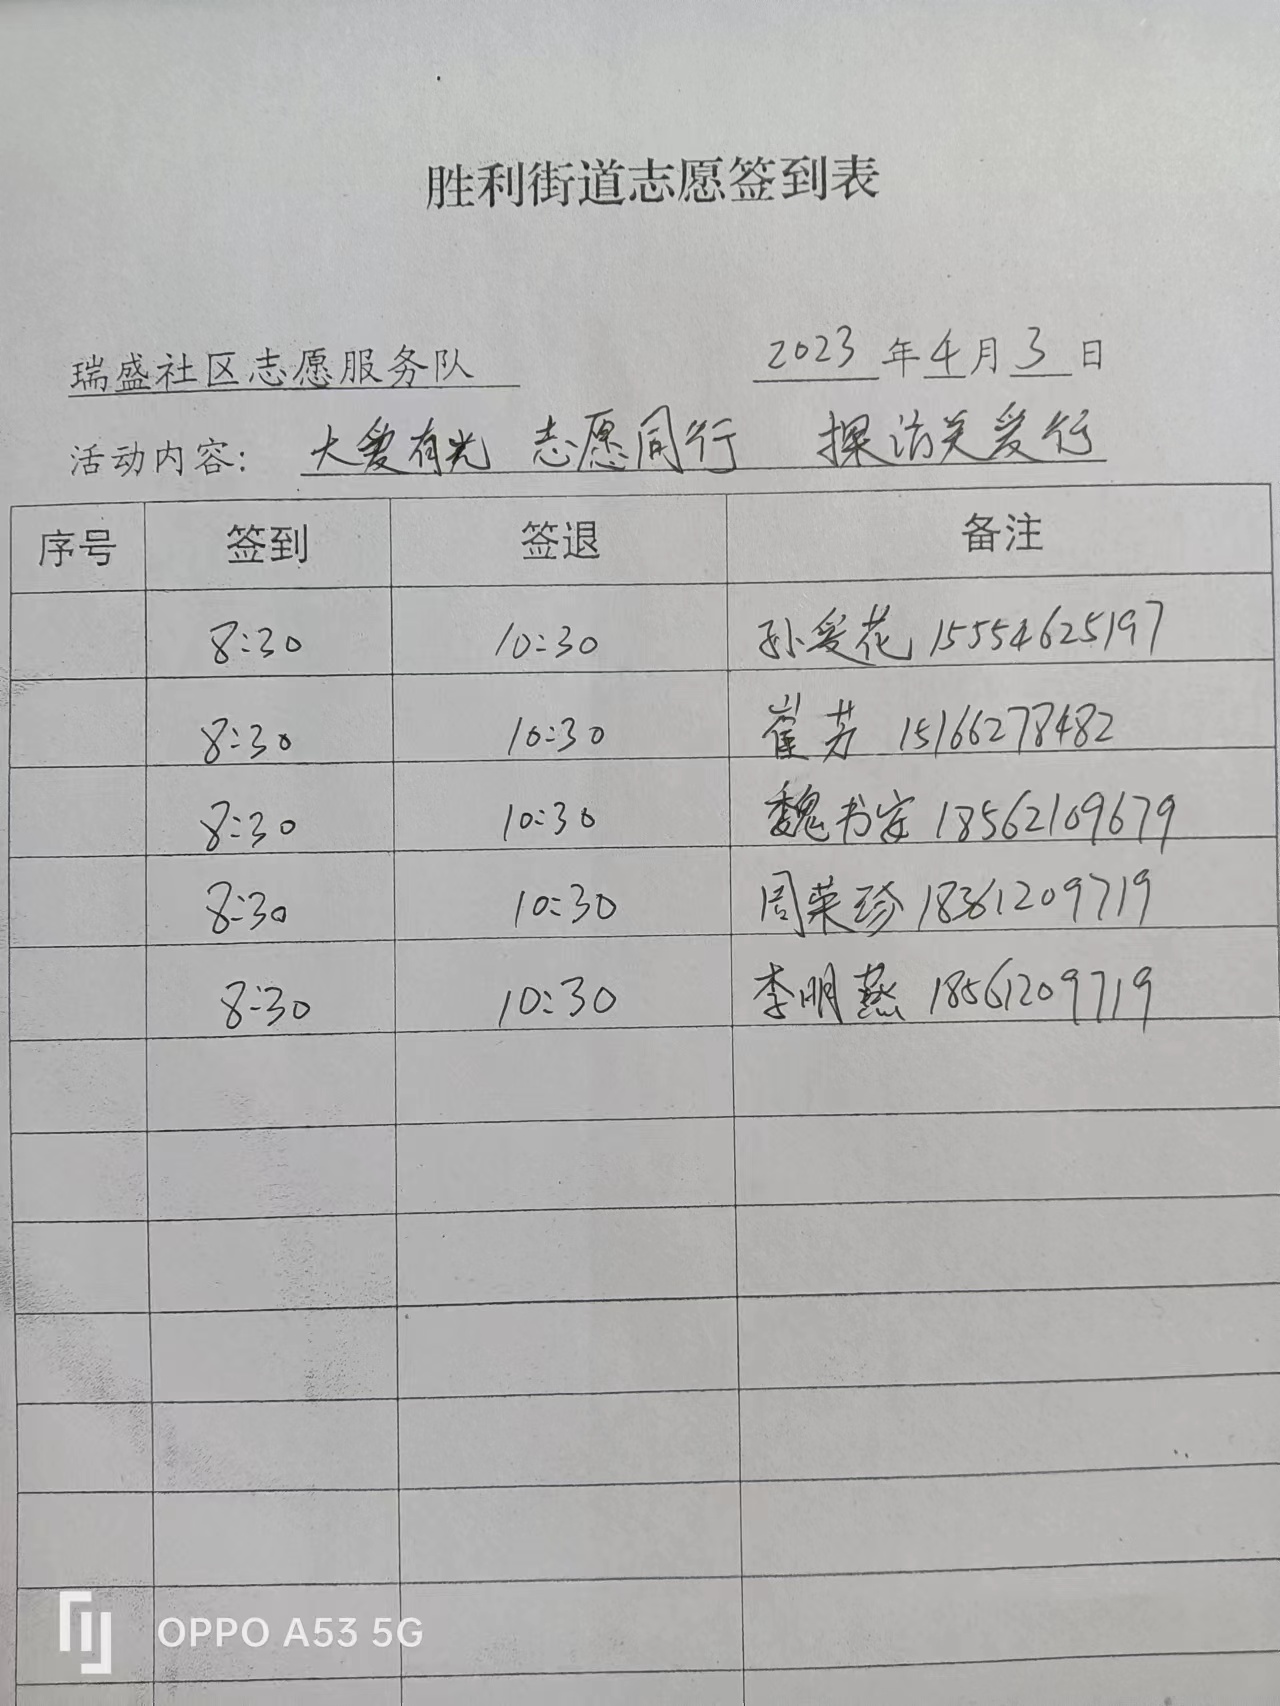 胜利街道志愿签到表
瑞盛社区志愿服务队 2023年4月3日
活动内容: 大爱有光 志愿同行 探访关爱行
序号 签到 签退 备注
8:30 10:30 孙爱花 15554625197
8:30 10:30 崔芳 15166278482
8:30 10:30 魏书安 18562109679
8:30 10:30 周荣珍 18361209719
8:30 10:30 李明燕 18561209719
OPPO A53 5G